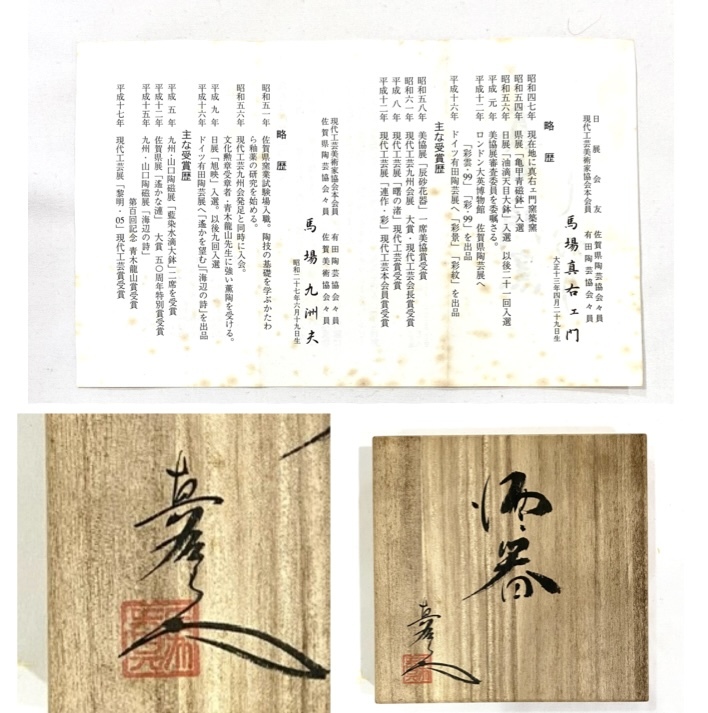 日展会友
現代工芸美術家協会本会員
佐賀県陶芸協会々員
有田陶芸協会々員
馬場真右エ門
大正十三年四月二十九日生
略歴
昭和四七年 現在地に真右ェ門窯築窯
昭和五四年 県展「亀甲青磁鉢」入選
昭和五六年 日展「油滴天目大鉢」入選 以後二十一回入選
平成元年 美協展審査委員を委嘱さる。
平成十二年 ロンドン大英博物館 佐賀県陶芸展へ
「彩雲・99」「彩・99」を出品
平成十六年 ドイツ有田陶芸展へ「彩景」「彩紋」を出品
主な受賞歴
昭和五八年 美協展「辰砂花器」一席美協賞受賞
昭和六一年 現代工芸九州会展 大賞・現代工芸会長賞受賞
平成八年 現代工芸展「曙の渚」現代工芸賞受賞
平成十二年 現代工芸展「連作・彩」現代工芸本会員賞受賞
現代工芸美術家協会本会員
佐賀県陶芸協会々員
有田陶芸協会々員
佐賀美術協会々員
馬場九洲夫
昭和二十七年六月十九日生
略歴
昭和五一年 佐賀県窯業試験場入職。陶技の基礎を学ぶかたわ
ら釉薬の研究を始める。
昭和五六年 現代工芸九州会発足と同時に入会。
文化勲章受章者・青木龍山先生に強い薫陶を受ける。
平成九年 日展「旭映」入選。以後九回入選
平成十六年 ドイツ有田陶芸展へ「遥かを望む」「海辺の詩」を出品
主な受賞歴
平成五年 九州・山口陶磁展「藍染水滴大鉢」二席を受賞
平成十二年 佐賀県展「遥かな漣」 大賞 五〇周年特別賞受賞
平成十五年 九州・山口陶磁展「海辺の詩」
第百回記念 青木龍山賞受賞
平成十七年 現代工芸展「黎明・05」現代工芸賞受賞
酒器